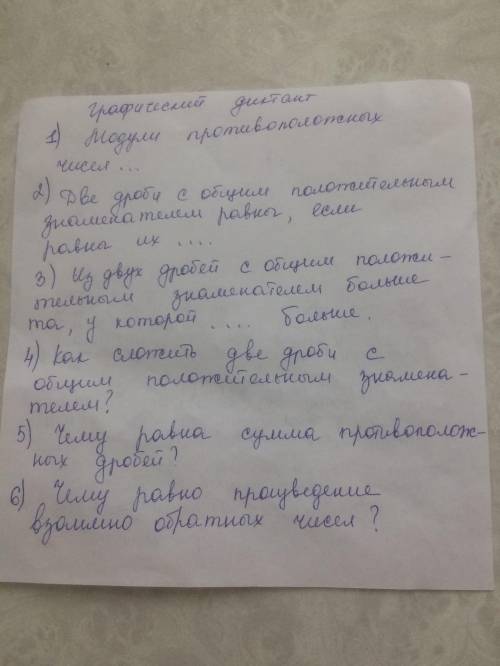 Графический диктант
1) Модули противоположных
чисел ...
2) Две дроби с общим положительным
знаменателем равны, если
равны их ....
3) Из двух дробей с общим положи-
тельным знаменателем больше
та, у которой .... больше.
4) Как сложить две дроби с
общим положительным знамена-
телем?
5) Чему равна сумма противополож-
ных дробей?
6) Чему равно произведение
взаимно обратных чисел?